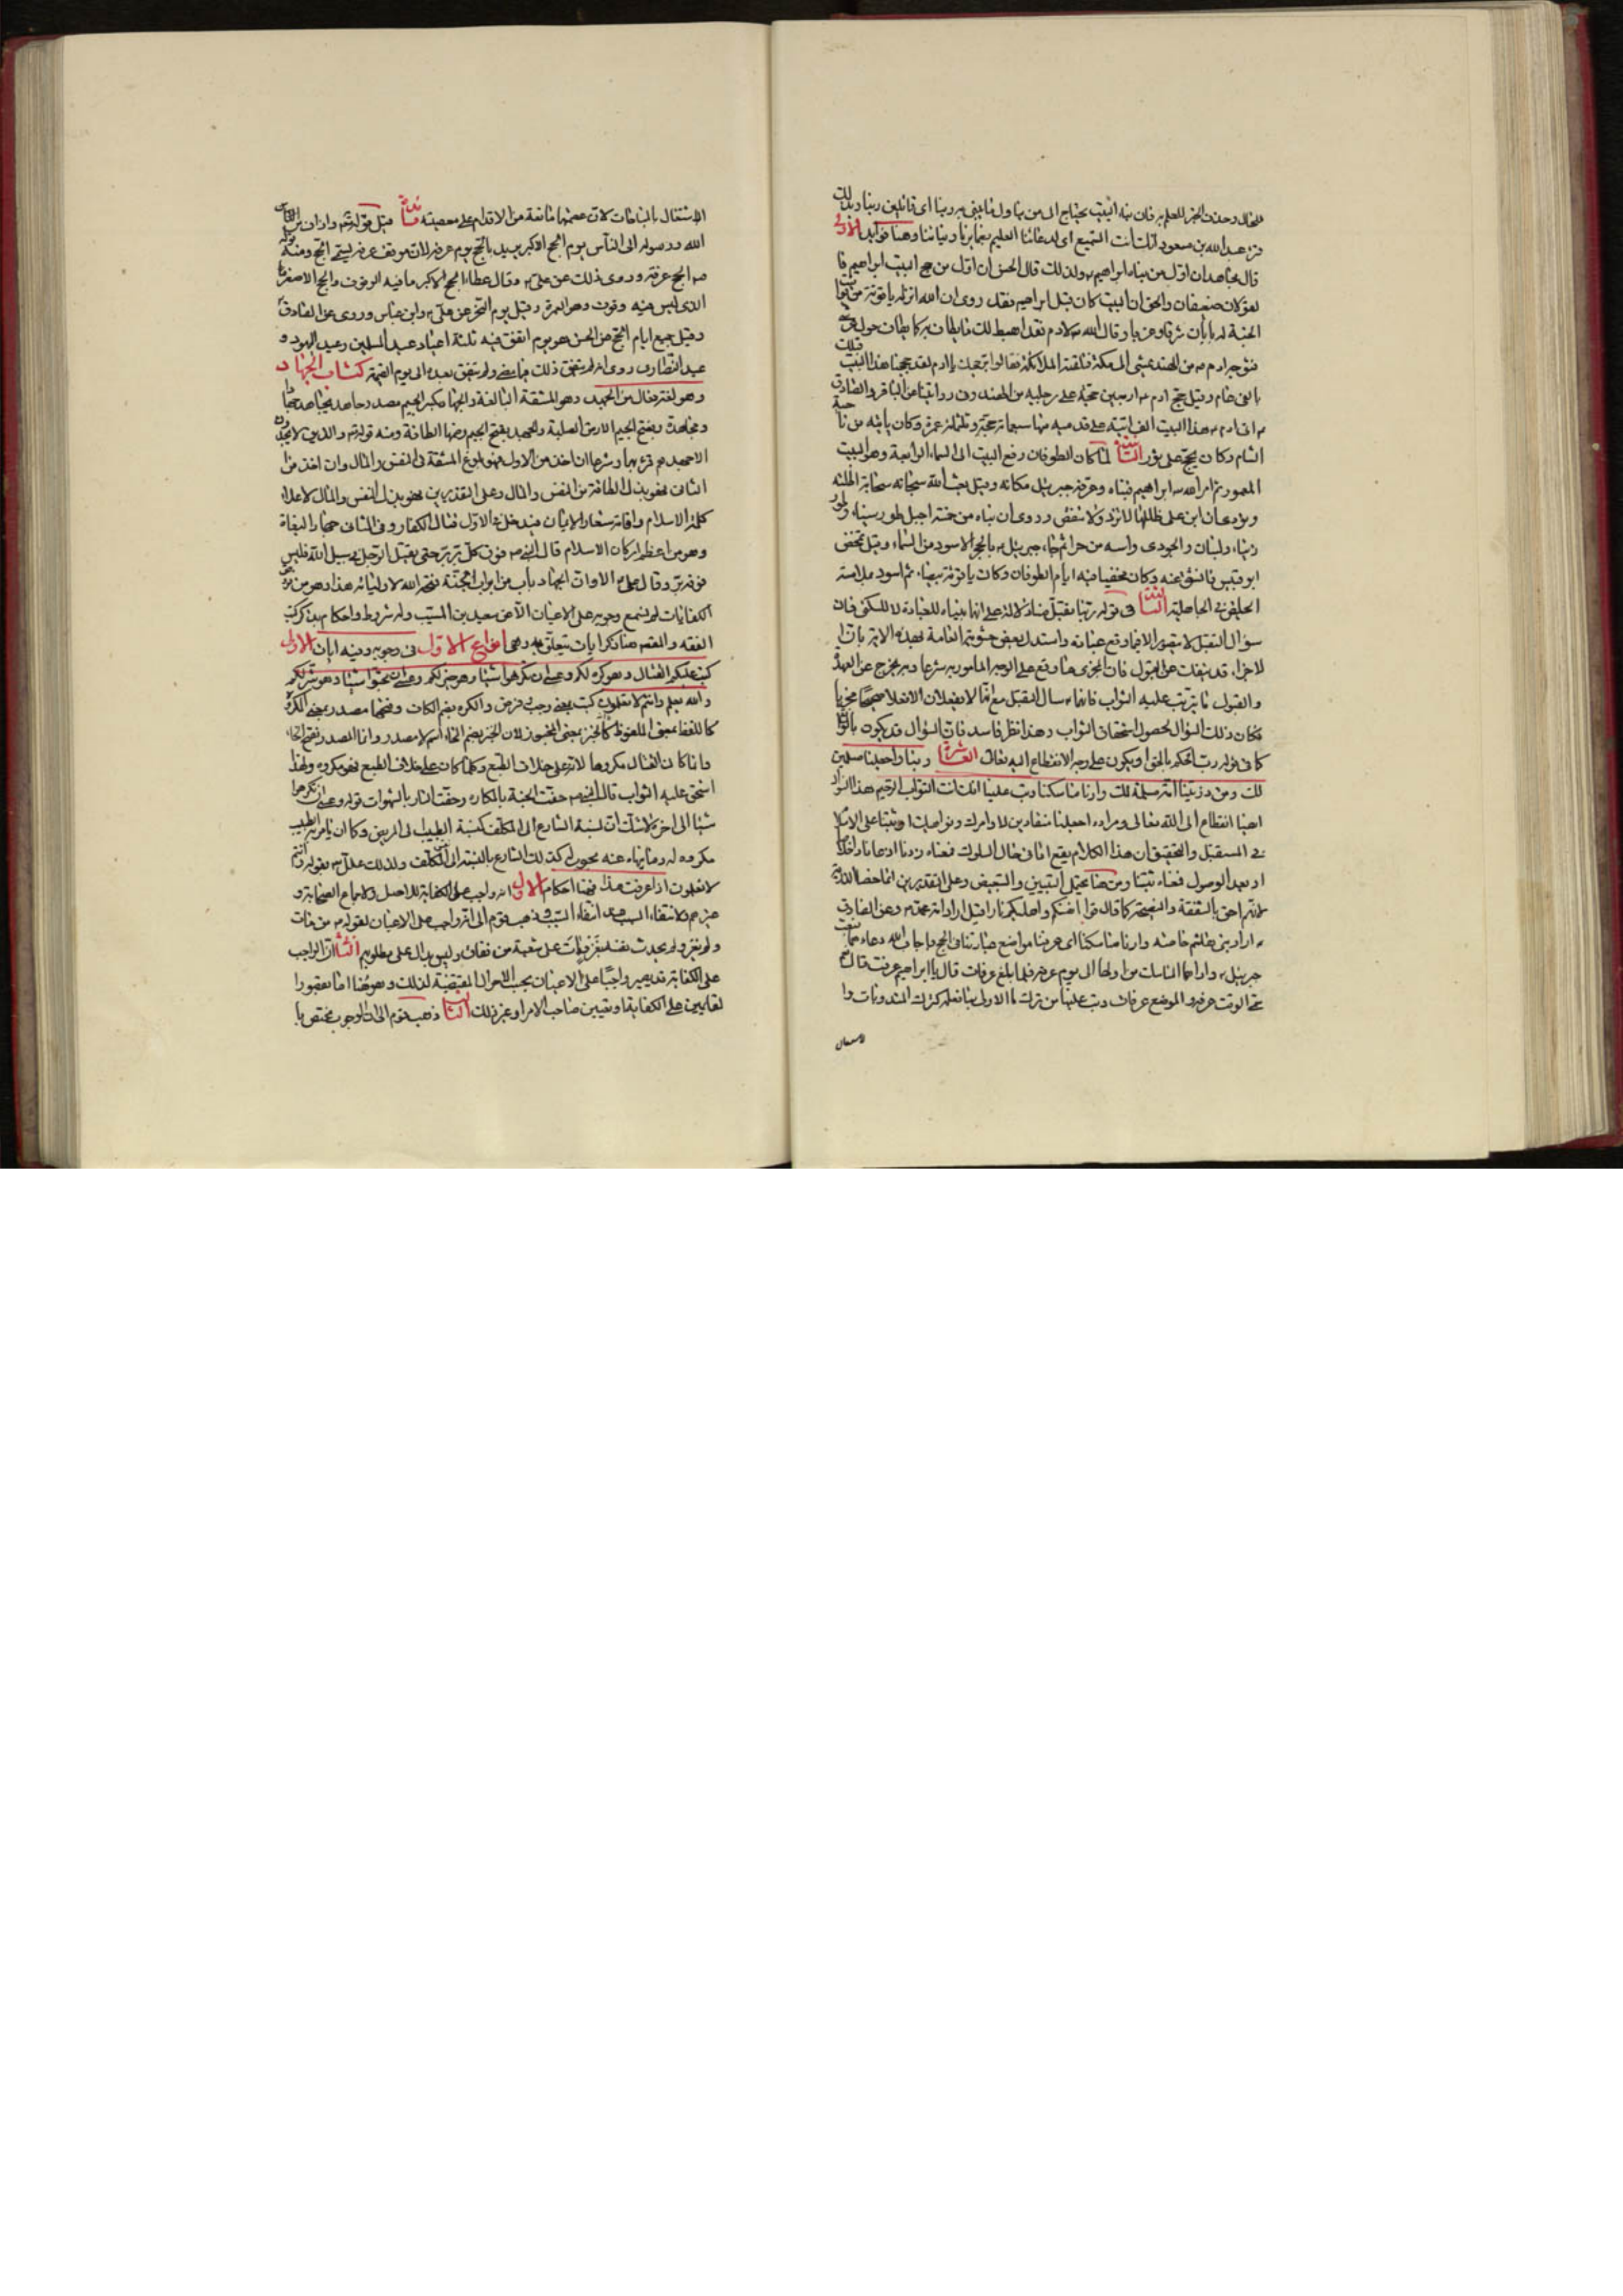 للحال وحذف الخبر للعلم به فان بناء البيت يحتاج الى من يناول ما يبنى به ربنا اى قائلين ربنا وبذلك
قرء عبد الله بن مسعود انك انت السميع اى لدعائنا العليم بضمايرنا ونياتنا وهنا فوايد الاولى
قال مجاهد ان اول من بناه ابراهيم ولذلك قال الحسن ان اول من حج البيت ابراهيم
القولان ضعيفان والحق ان البيت كان قبل ابراهيم فقد روى ان الله انزله ياقوتة من يواقيت
الجنة له بابان شرقا وغربا وقال الله لادم فقد اهبط لك ما يطاف به كما يطاف حول عرشى
فتوجه ادم من الهند يمشى الى مكة فتلقته الملائكة فقالوا بر حجك يا ادم لقد حججنا هذا البيت قبلك
بالفى عام وقيل حج ادم اربعين حجة على رجليه من الهند وفى رواياتنا عن الباقر والصادق
ان ادم هذا البيت الف اتية على قدميه منها سبعمائة حجة وثلثمائة عمرة وكان ياتيه من ناحية
الشام وكان يحج على ثور الثانية لما كان الطوفان رفع البيت الى السماء الرابعة وهو البيت
المعمور ثم امر الله ابراهيم ببناه وعرفه جبرئيل مكانه وقيل بعث الله سبحانه سحابة اظلته
ونودى ان ابن على ظلها لا تزد ولا تنقص وروى ان بناه من خمسة اجبل طور سيناء وطور
زيتا ولبنان والجودى واسه من حراء ثم جاء جبرئيل بالحجر الاسود من السماء وقيل تمخض
ابو قبيس فانشق عنه وكان مخفيا فيه ايام الطوفان وكان ياقوتة بيضاء ثم اسود بملامسة
الحايض فى الجاهلية الثالثة فى قوله ربنا تقبل منا دلالة على انهما بنياه للعبادة لا للسكنى فان
سؤال التقبل لا يتصور الا فيما وقع عبادة واستدل بعض حشوية العامة بهذه الاية بان
الاجزاء قد ينفك عن القبول فان المجزى ما وقع على الوجه المأمور به شرعا وبه يخرج عن العهدة
والقبول ما يترتب عليه الثواب فانهما سالا التقبل مع انهما لا يفعلان الا فعلا صحيحا مجزيا
فكان ذلك السؤال لحصول استحقاق الثواب وهذا نظر فاسد فان السؤال قد يكون بالواقع
كما فى قوله رب احكم بالحق او يكون على وجه الانقطاع اليه تعالى العاشرة ربنا واجعلنا مسلمين
لك ومن ذريتنا امة مسلمة لك وارنا مناسكنا وتب علينا انك انت التواب الرحيم هذا السؤال
ايضا انقطاع الى الله تعالى ومراده اجعلنا منقادين لاوامرك ونواهيك او ثبتنا على الاسلام
فى المستقبل والتحقيق ان هذا الكلام يقع اما فى حال السلوك فمعناه زدنا اذعانا واخلاصا
او بعد الوصول فمعناه ثبتنا ومن هنا يحتمل التبيين والتبعيض وعلى التقديرين انما خصا الذرية
لانهم احق بالشفقة والنصيحة كما قال قوا انفسكم واهليكم نارا قيل اراد امة محمد وعن الصادق
اراد بنى هاشم خاصة وارنا مناسكنا اى عرفنا مواضع عبادتنا فى الحج فاجاب الله دعاءهما فبعث
جبرئيل واراهما المناسك من اولها الى يوم عرفة فلما بلغ عرفات قال يا ابراهيم عرفت قال نعم
سمى الوقت عرفة والموضع عرفات وتب علينا من ترك ما الاولى بنا فعله كترك المندوبات وا
لاشتغال
الاشتغال بالمباحات لان عصمتهما مانعة من الاقدام على معصيته فائدة قيل قوله تعالى واذان من
الله ورسوله الى الناس يوم الحج الاكبر يريد بالحج يوم عرفة لان موقف عرفة يسمى الحج ومنه قوله
الحج عرفة وروى ذلك عن على وقال عطاء الحج الاكبر ما فيه الوقوف والحج الاصغر
الذى ليس فيه وقوف وهو العمرة وقيل يوم النحر عن على وابن عباس وروى عن الصادق
وقيل جميع ايام الحج عن الحسن هو يوم اتفق فيه ثلثة اعياد عيد المسلمين وعيد اليهود و
عيد النصارى روى انه لم يتفق ذلك فيما مضى ولم يتفق بعده الى يوم القيمة كتاب الجهاد
وهو لغة فعال من الجهد وهو المشقة البالغة والجهاد بكسر الجيم مصدر جاهد يجاهد جهادا
ومجاهدة وبفتح الجيم الارض الصلبة والجهد بفتح الجيم وضمها الطاقة ومنه قوله والذين لا يجدون
الا جهدهم قرئ بهما وشرعا ان اخذ من الاول فهو بلوغ المشقة فى النفس والمال وان اخذ من
الثانى فهو بذل الطاقة من النفس والمال وعلى التقديرين فهو بذل النفس والمال لاعلاء
كلمة الاسلام واقامة شعار الايمان فيدخل فى الاول قتال الكفار وفى الثانى جهاد البغاة
وهو من اعظم اركان الاسلام قال النبى فوق كل بر بر حتى يقتل الرجل فى سبيل الله فليس
فوقه بر وقال على الا وان الجهاد باب من ابواب الجنة فتحه الله لاوليائه هذا وهو من فروض
الكفايات لم يسمع وجوبه على الاعيان الا عن سعيد بن المسيب وله شروط واحكام يذكر فى كتب
الفقه والقصد هنا ذكر ايات يتعلق به وهى انواع الاول فى وجوبه وفيه ايات الاولى
كتب عليكم القتال وهو كره لكم وعسى ان تكرهوا شيئا وهو خير لكم وعسى ان تحبوا شيئا وهو شر لكم
والله يعلم وانتم لا تعلمون كتب بمعنى وجب وفرض والكره بضم الكاف وفتحها مصدر بمعنى المكروه
كاللفظ بمعنى الملفوظ كالخبز بمعنى المخبوز لان الخبز بضم الخاء اسم لا مصدر وانما المصدر بفتح الخاء
وانما كان القتال مكروها لانه على خلاف الطبع وكلما كان على خلاف الطبع فهو مكروه ولهذا
استحق عليه الثواب قال النبى حفت الجنة بالمكاره وحفت النار بالشهوات قوله وعسى ان تكرهوا
شيئا الى اخره لا شك ان نسبة الشارع الى المكلف كنسبة الطبيب الى المريض وكما ان ما يامر به الطبيب
مكروه له وما ينهاه عنه محبوب له كذلك الشارع بالنسبة الى المكلف ولذلك علله بقوله وانتم
لا تعلمون اذا عرفت هذا فهنا احكام الاول انه واجب على الكفاية للاصل ولاجماع الصحابة و
غيرهم ولانتفاء السبب عند انتفاء السبب وذهب قوم الى انه واجب على الاعيان لقوله من مات
ولم يغز ولم يحدث نفسه بغزو مات على شعبة من نفاق وليس بدال على مطلوبهم الثانى ان الواجب
على الكفاية قد يصير واجبا على الاعيان بحسب الاحوال المقتضية لذلك وهو هنا اما بقصور ا
لقايمين على الكفاية او بتعيين صاحب الامر او غير ذلك الثالث ذهب قوم الى ان الوجوب مختص با